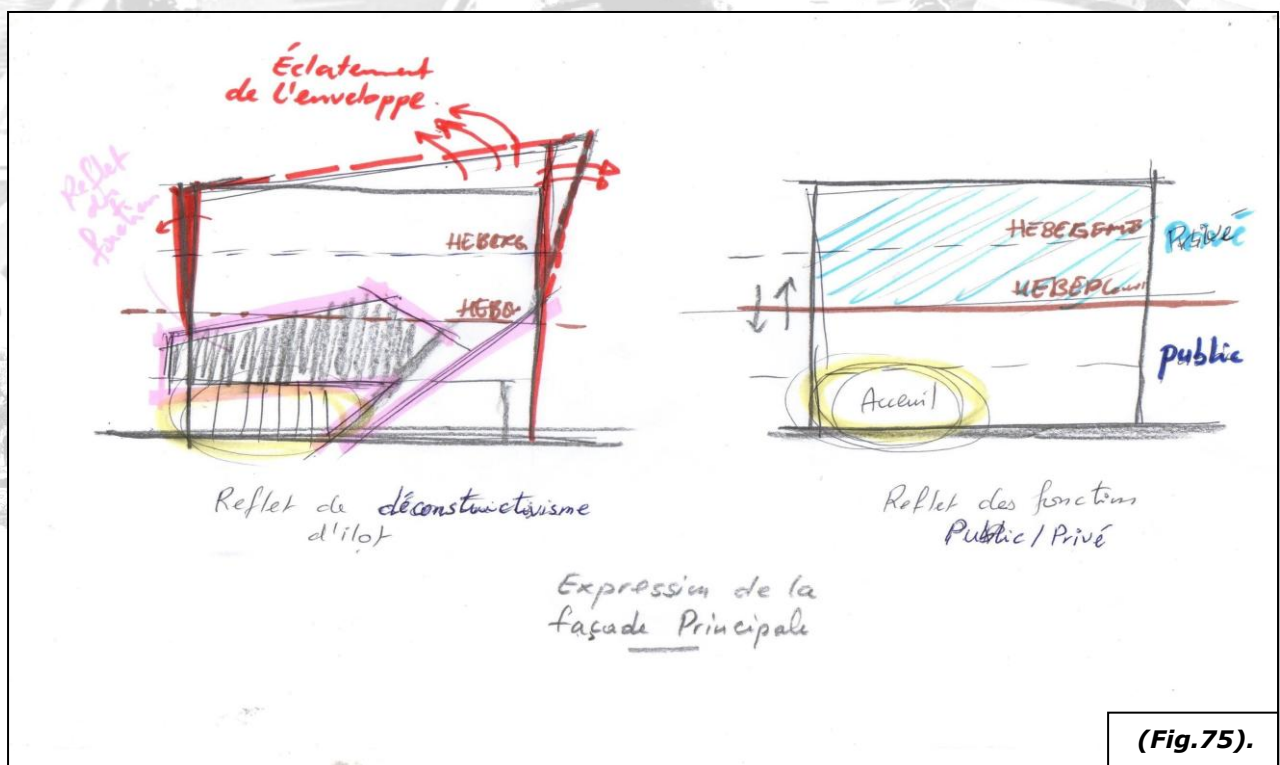 Éclatement
de l'enveloppe.
Reflet
de
fonction
HEBERG
HEBG
Reflet de déconstructivisme
d'ilot
HEBERGEMT
Privée
HEBERG
public
Accueil
Reflet des fonctions
Public / Privé
Expression de la
façade Principale
(Fig.75).